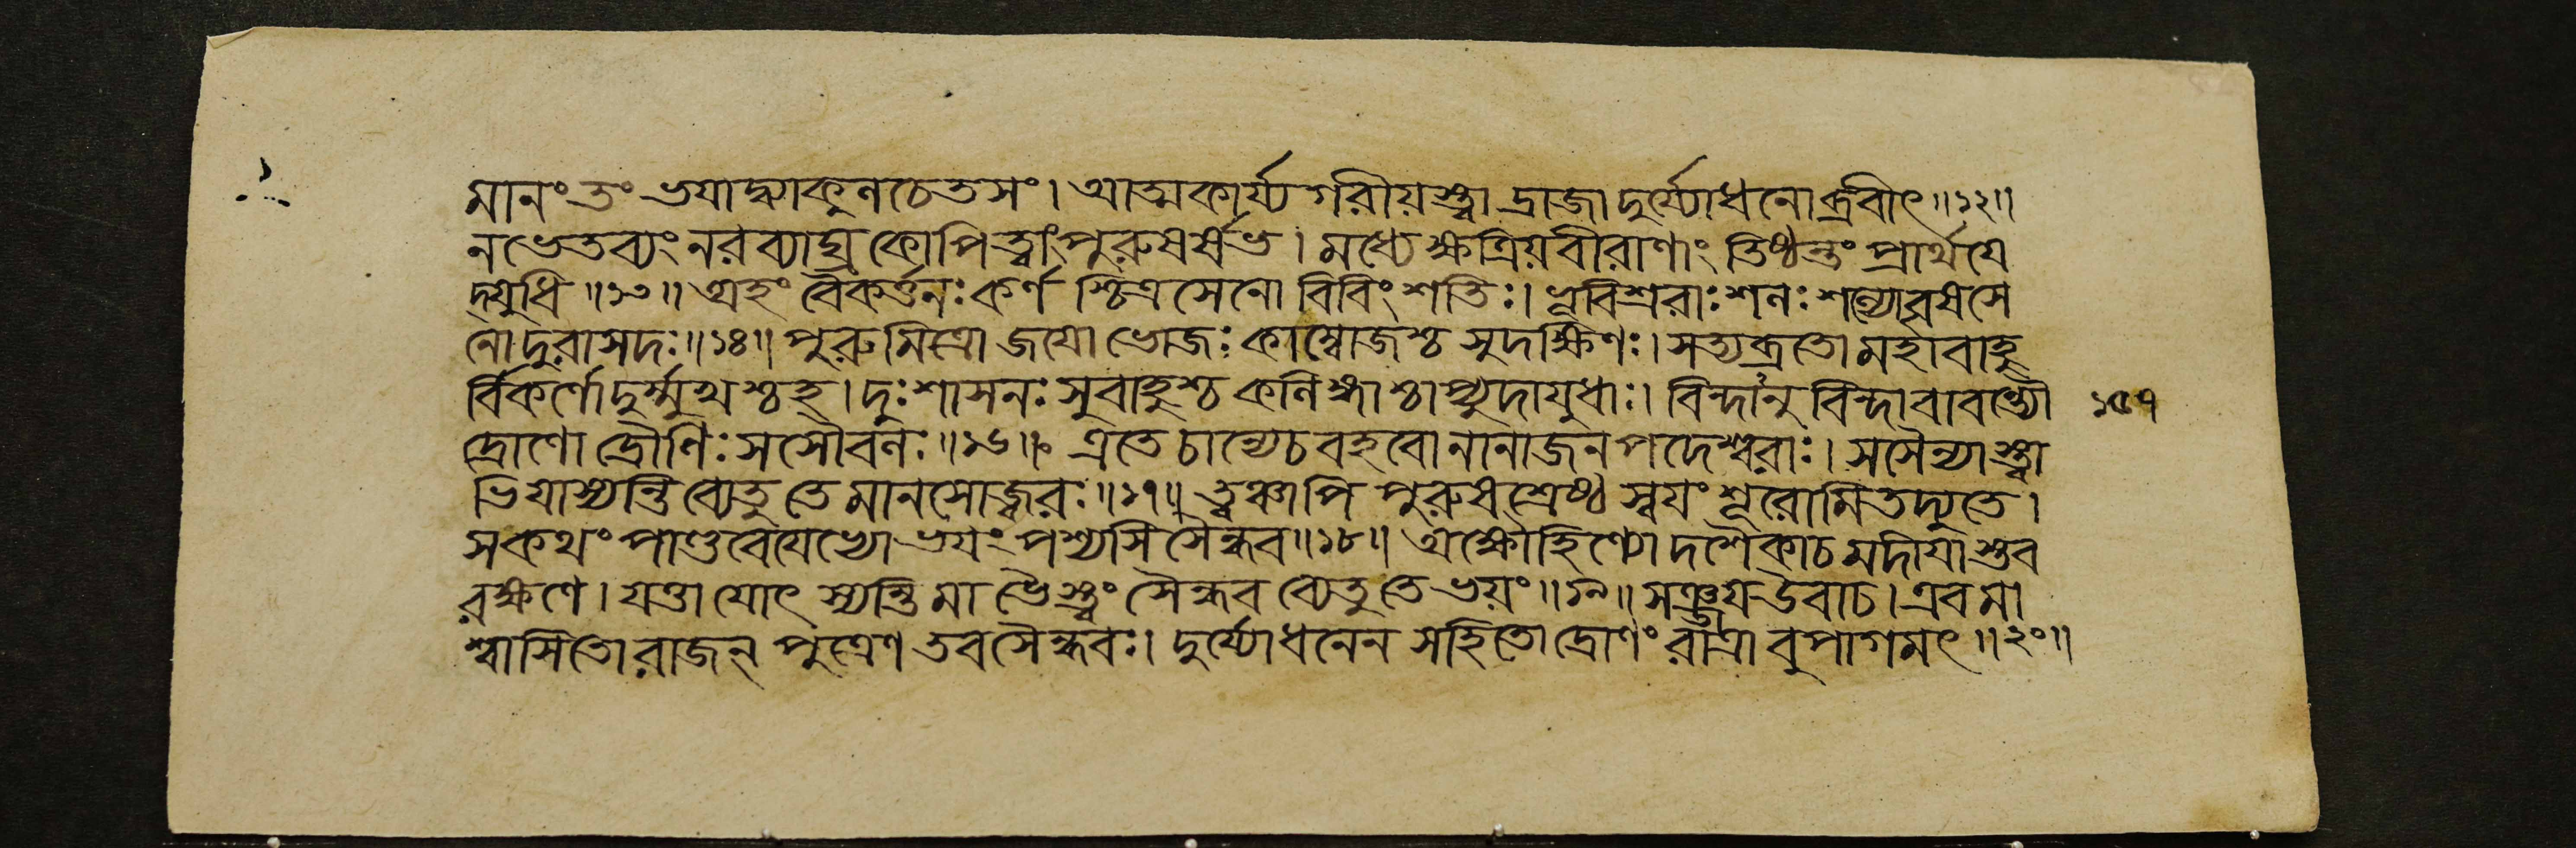 মানং তং ভয়াদ্ব্যাকুলচেতসং। আত্মকার্য্যগরীয়স্ত্বাদ্রাজা দুর্য্যোধনোব্রবীৎ॥১২॥
নভেতব্যং নরব্যাঘ্র কোপি ত্বাং পুরুষর্ষভ। মধ্যে ক্ষত্রিয়বীরাণাং তিষ্ঠন্তং প্রার্থয়ে
দ্যুধি॥১৩॥ অহং বৈকর্ত্তনঃ কর্ণশ্চিত্রসেনো বিবিংশতিঃ। ভূরিশ্রবাঃ শলঃ শল্যো বৃষসে
নো দুরাসদঃ॥১৪॥ পুরুমিত্রো জয়ো ভোজঃ কাম্বোজশ্চ সুদক্ষিণঃ। সত্যব্রতো মহাবাহু
র্বিকর্ণো দুর্ম্মুখশ্চহ। দুঃশাসনঃ সুবাহুশ্চ কলিঙ্গাশ্চাপ্যুদায়ুধাঃ। বিন্দানুবিন্দাবাবন্ত্যৌ ১৫৭
দ্রোণো দ্রৌণিঃ সসৌবলঃ॥১৬॥ এতে চান্যেচ বহবো নানাজনপদেশ্বরাঃ। সসৈন্যাস্ত্বা
ভিয়াস্যন্তি ব্যেতু তে মানসো জ্বরঃ॥১৭॥ ত্বঞ্চাপি পুরুষশ্রেষ্ঠ স্বয়ং শূরোমিতদ্যুতে।
সকথং পাণ্ডবেয়েভ্যো ভয়ং পশ্যসি সৈন্ধব॥১৮॥ অক্ষৌহিণ্যো দশৈকাচ মদীয়াস্তব
রক্ষণে। যত্তা যোৎস্যন্তি মা ভৈস্ত্বং সৈন্ধব ব্যেতু তে ভয়ং॥১৯॥ সঞ্জয়উবাচ। এবমা
শ্বাসিতো রাজন্ পুত্রেণ তব সৈন্ধবঃ। দুর্য্যোধনেন সহিতো দ্রোণং রাত্রাবুপাগমৎ॥২০॥